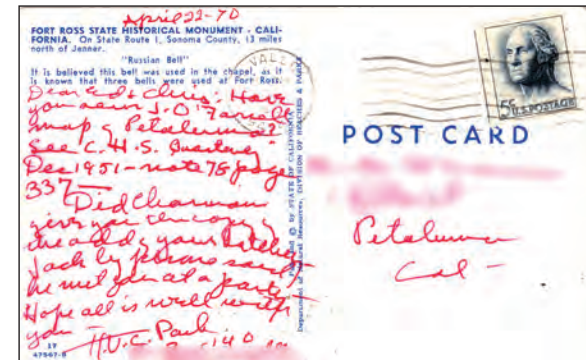 April 22-70
FORT ROSS STATE HISTORICAL MONUMENT - CALI-
FORNIA. On State Route 1, Sonoma County, 13 miles
north of Jenner.
"Russian Bell"
It is believed this bell was used in the chapel, as it
is known that three bells were used at Fort Ross.
Dear Ed & Chris: Have
you seen J. O'Farrell
map of Petaluma?
See C.H.S. Quarterly
Dec 1951 - note 78 page
337 -
Did
give you the copy
the add, your
Jack by phone said
he met you at a party
Hope all is well with
you -
H.V.C.
17
47567-B
BY STATE OF CALIFORNIA
Department of Natural Resources, DIVISION OF BEACHES & PARKS
VALL
5¢ U.S. POSTAGE
POST CARD
Petaluma
Cal -